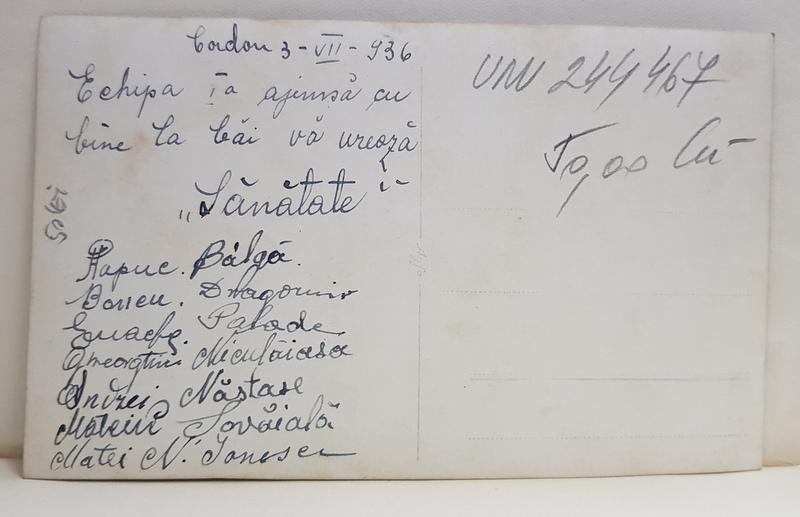 Codou 3-VII-936
Echipa Ia ajunsă cu
bine la băi vă urează
„Sănătate"
Papuc. Bâlgă.
Boncu. Dragomir
Enache. Palade
Gheorghiu Niculăiasa
Andrei Năstase
Mateiu Șovăială
Matei N. Ionescu
UNV 244467